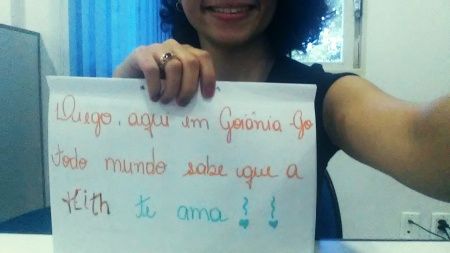 Diego, aqui em Goiânia-Go
todo mundo sabe que a
Keith te ama !!